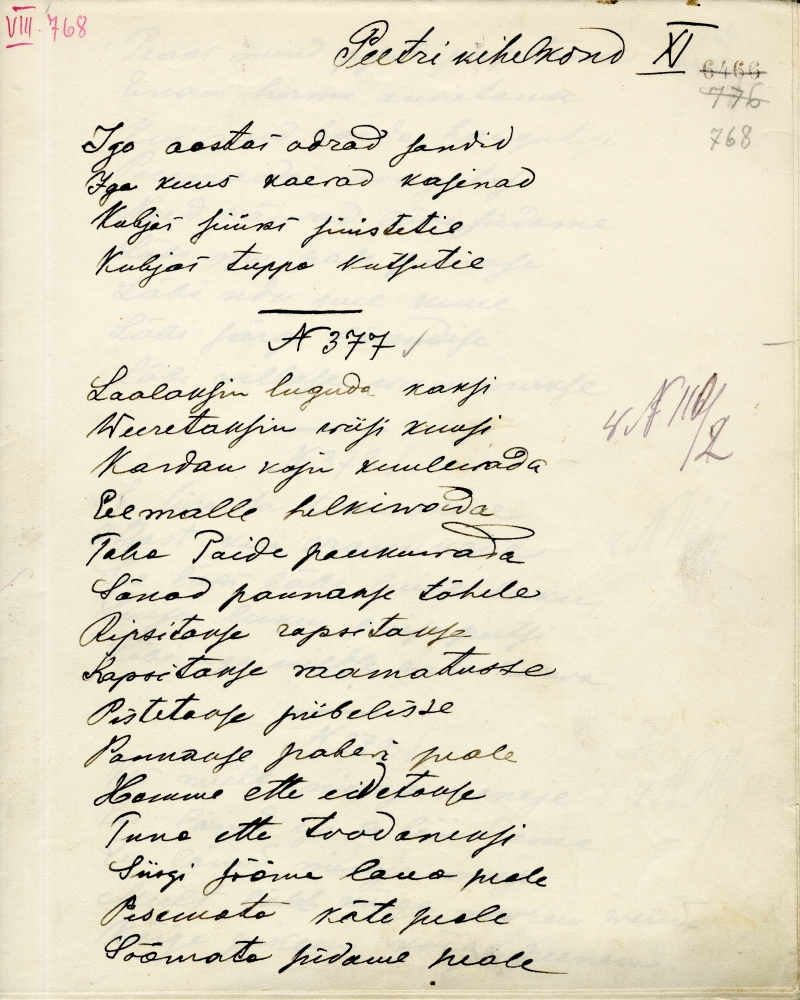 VIII. 768
Peetri kihelkond XI
6466
776
768
Iga aastas odrad sandid
Iga kuus kaerad kasinad
Kubjas süüks süüstetie
Kubjas tuppa kutsutie
N 377
Laalaksin luguda kaksi
Weeretaksin wiisi kuusi
Kardan koju kuulewada
Eemalle helkiwada
Taha Paide paukuwada
Sõnad pannakse tõhele
Ripsitakse rapsitakse
Kapsitakse raamatusse
Pistetakse piibelisse
Pannakse paberi peale
Homme ette eidetakse
Tuna ette toodaneksi
Siisgi sööme laua peale
Pesemata käte peale
Söömata südame peale